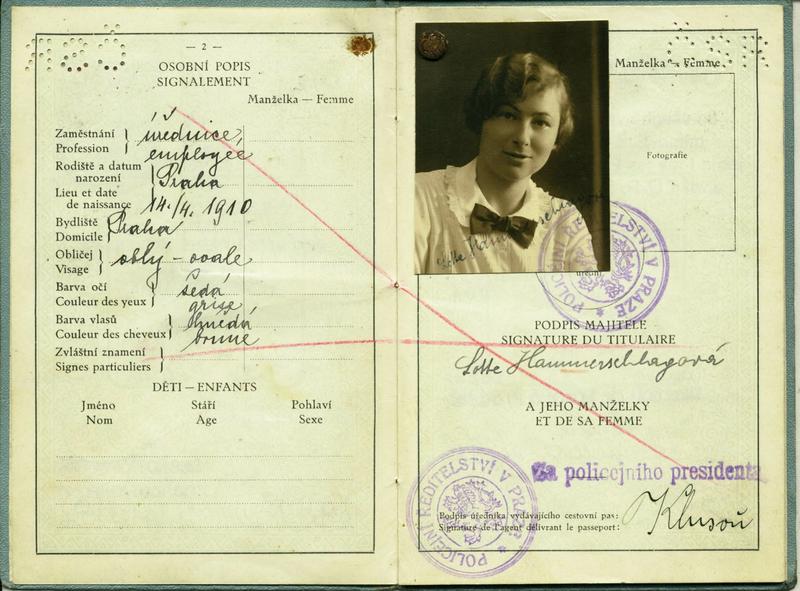 — 2 —
OSOBNÍ POPIS
SIGNALEMENT
Manželka — Femme
Zaměstnání
Profession
úřednice,
employée
Rodiště a datum
narození
Lieu et date
de naissance
Praha
14./4. 1910
Bydliště
Domicile
Praha
Obličej
Visage
oblý - ovale
Barva očí
Couleur des yeux
šedá
grise
Barva vlasů
Couleur des cheveux
hnědá
brune
Zvláštní znamení
Signes particuliers
DĚTI — ENFANTS
Jméno Stáří Pohlaví
Nom Age Sexe
Manželka — Femme
Fotografie
Lotte Hammerschlagová
POLICEJNÍ ŘEDITELSTVÍ V PRAZE
PODPIS MAJITELE
SIGNATURE DU TITULAIRE
Lotte Hammerschlagová
A JEHO MANŽELKY
ET DE SA FEMME
Za policejního presidenta
POLICEJNÍ ŘEDITELSTVÍ V PRAZE
Podpis úředníka vydávajícího cestovní pas:
Signature de l'agent délivrant le passeport: